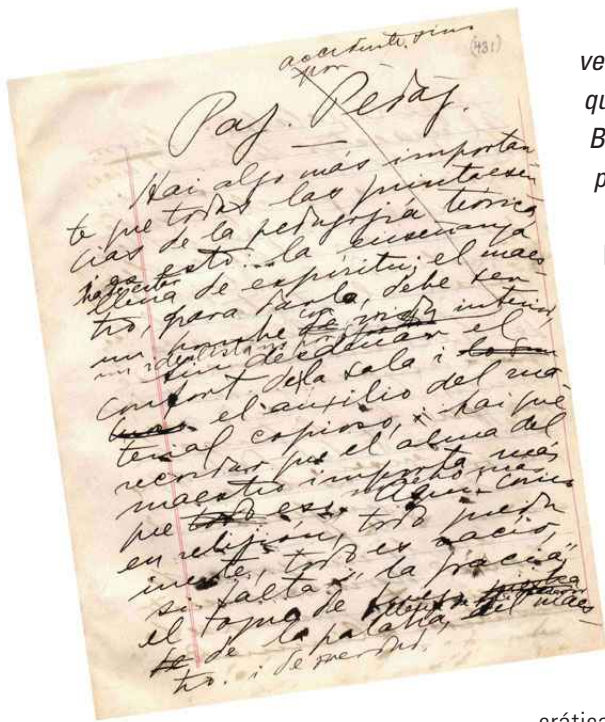 accidente, sino
por
(431)
Paj. Pedag.
Hai algo más importan
te que todas las quintaesen
cias de la pedagojía teórica
i es esto: la enseñanza
ha de estar
llena de espíritu; el maes
tro, para darla, debe ser
un hombre con vida interior,
un idealista
sin desdeñar el
confort de la sala i
el auxilio del ma
terial copioso, hai que
recordar que el alma del
maestro importa más
que mucho más
Aquí, como
en relijión, todo queda
inerte, todo es vacío,
si falta "la gracia",
el toque de
de la palabra del maes
tro. i de
ve
qu
B
p
erática